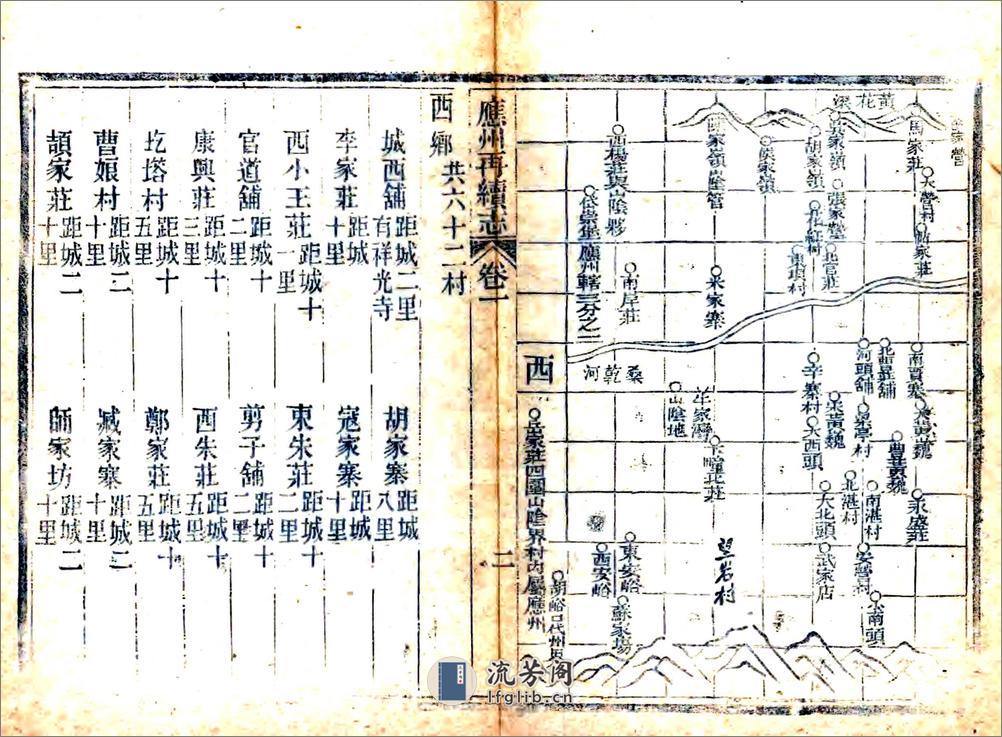 黃花梁
馬家莊
大營村
南賈寨
永盛莊
曹黃魏
南湛村
小南頭
北湛村
安營村
河頭舖
梁亭村
吳家嶺
張家營
北官莊
胡家嶺
東堡村
侯家嶺
辛寨村
朱黃魏
大西頭
大北頭
武家店
米家寨
望岩村
西楊莊與陰夥
岱嶽集應州轄三分之二
南岸莊
桑乾河
山陰地
東安峪
西安峪
蘇家場
岳家莊四圍山陰界村內屬應州
西
應州再續志
卷一
二
西鄉 共六十二村
城西舖 距城二里 有祥光寺
胡家寨 距城八里
李家莊 距城十里
寇家寨 距城十里
西小王莊 距城十一里
東朱莊 距城十二里
官道舖 距城十二里
剪子舖 距城十二里
康興莊 距城十三里
西朱莊 距城十五里
圪塔村 距城十五里
鄭家莊 距城十五里
曹娘村 距城二十里
臧家寨 距城二十里
頡家莊 距城二十里
師家坊 距城二十里
流芳阁
lfglib.cn